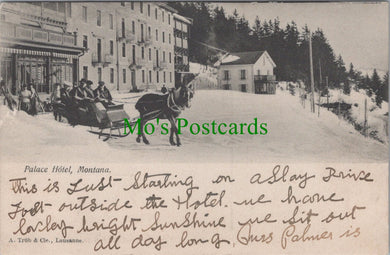 Mo's Postcards
Palace Hôtel, Montana.
This is Just Starting on a Slay Drive
Just outside the Hotel. we have
lovley bright Sunshine we sit out
all day long, Miss Palmer is
A. Trüb & Cie., Lausanne.